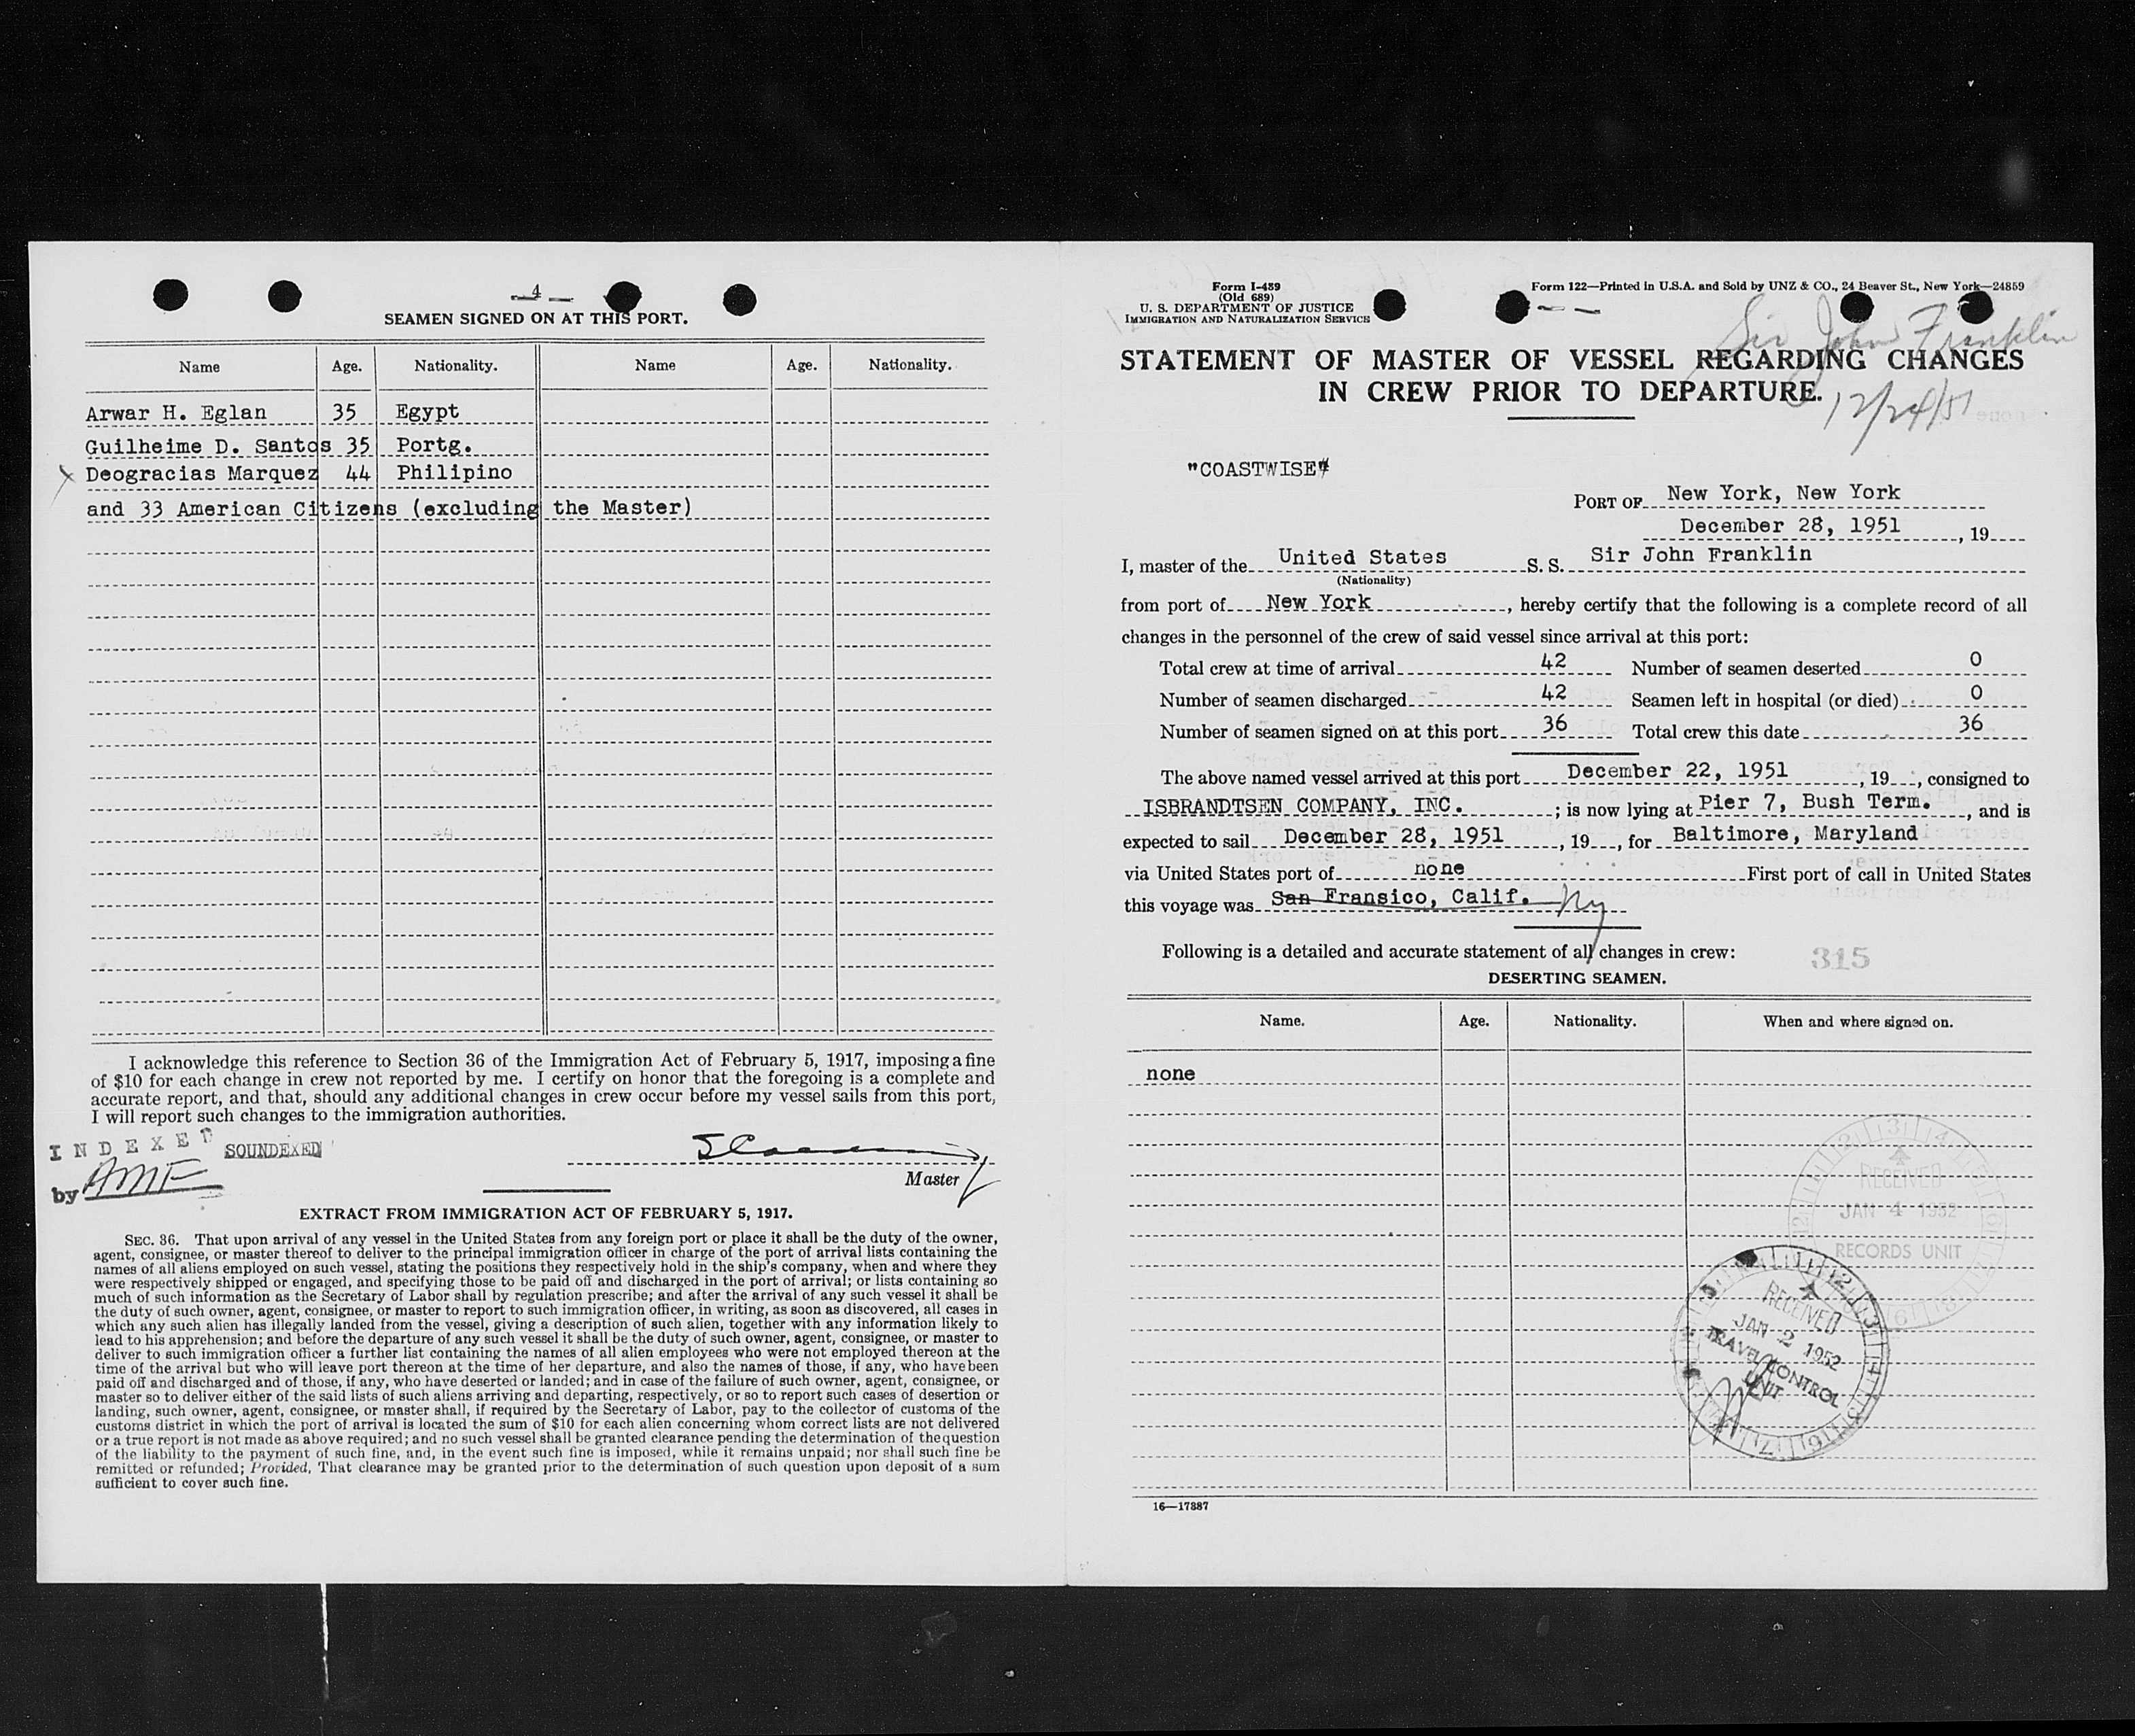 4
SEAMEN SIGNED ON AT THIS PORT.
Name Age. Nationality. Name Age. Nationality.
Arwar H. Eglan 35 Egypt
Guilheime D. Santos 35 Portg.
X Deogracias Marquez 44 Philipino
and 33 American Citizens (excluding the Master)
I acknowledge this reference to Section 36 of the Immigration Act of February 5, 1917, imposing a fine
of $10 for each change in crew not reported by me. I certify on honor that the foregoing is a complete and
accurate report, and that, should any additional changes in crew occur before my vessel sails from this port,
I will report such changes to the immigration authorities.
INDEXED SOUNDEXED
by AMF
Master
EXTRACT FROM IMMIGRATION ACT OF FEBRUARY 5, 1917.
SEC. 36. That upon arrival of any vessel in the United States from any foreign port or place it shall be the duty of the owner,
agent, consignee, or master thereof to deliver to the principal immigration officer in charge of the port of arrival lists containing the
names of all aliens employed on such vessel, stating the positions they respectively hold in the ship's company, when and where they
were respectively shipped or engaged, and specifying those to be paid off and discharged in the port of arrival; or lists containing so
much of such information as the Secretary of Labor shall by regulation prescribe; and after the arrival of any such vessel it shall be
the duty of such owner, agent, consignee, or master to report to such immigration officer, in writing, as soon as discovered, all cases in
which any such alien has illegally landed from the vessel, giving a description of such alien, together with any information likely to
lead to his apprehension; and before the departure of any such vessel it shall be the duty of such owner, agent, consignee, or master to
deliver to such immigration officer a further list containing the names of all alien employees who were not employed thereon at the
time of the arrival but who will leave port thereon at the time of her departure, and also the names of those, if any, who have been
paid off and discharged and of those, if any, who have deserted or landed; and in case of the failure of such owner, agent, consignee, or
master so to deliver either of the said lists of such aliens arriving and departing, respectively, or so to report such cases of desertion or
landing, such owner, agent, consignee, or master shall, if required by the Secretary of Labor, pay to the collector of customs of the
customs district in which the port of arrival is located the sum of $10 for each alien concerning whom correct lists are not delivered
or a true report is not made as above required; and no such vessel shall be granted clearance pending the determination of the question
of the liability to the payment of such fine, and, in the event such fine is imposed, while it remains unpaid; nor shall such fine be
remitted or refunded; Provided, That clearance may be granted prior to the determination of such question upon deposit of a sum
sufficient to cover such fine.
Form I-489
(Old 689)
U. S. DEPARTMENT OF JUSTICE
IMMIGRATION AND NATURALIZATION SERVICE
Form 122—Printed in U.S.A. and Sold by UNZ & CO., 24 Beaver St., New York—24859
Sir John Franklin
STATEMENT OF MASTER OF VESSEL REGARDING CHANGES
IN CREW PRIOR TO DEPARTURE.
12/28/51
"COASTWISE"
PORT OF New York, New York
December 28, 1951, 19
I, master of the United States S. S. Sir John Franklin
(Nationality)
from port of New York, hereby certify that the following is a complete record of all
changes in the personnel of the crew of said vessel since arrival at this port:
Total crew at time of arrival 42 Number of seamen deserted 0
Number of seamen discharged 42 Seamen left in hospital (or died) 0
Number of seamen signed on at this port 36 Total crew this date 36
The above named vessel arrived at this port December 22, 1951, 19, consigned to
ISBRANDTSEN COMPANY, INC.; is now lying at Pier 7, Bush Term., and is
expected to sail December 28, 1951, 19, for Baltimore, Maryland
via United States port of none First port of call in United States
this voyage was San Fransico, Calif. Ny
Following is a detailed and accurate statement of all changes in crew:
315
DESERTING SEAMEN.
Name. Age. Nationality. When and where signed on.
none
RECEIVED
JAN 4 1952
RECORDS UNIT
RECEIVED
JAN 2 1952
TRAVEL CONTROL
UNIT
16—17887